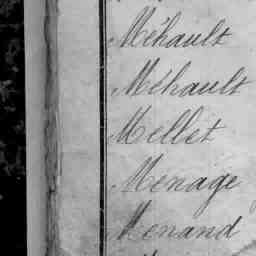 Méhault
Méhault
Mellet
Menage
Menand